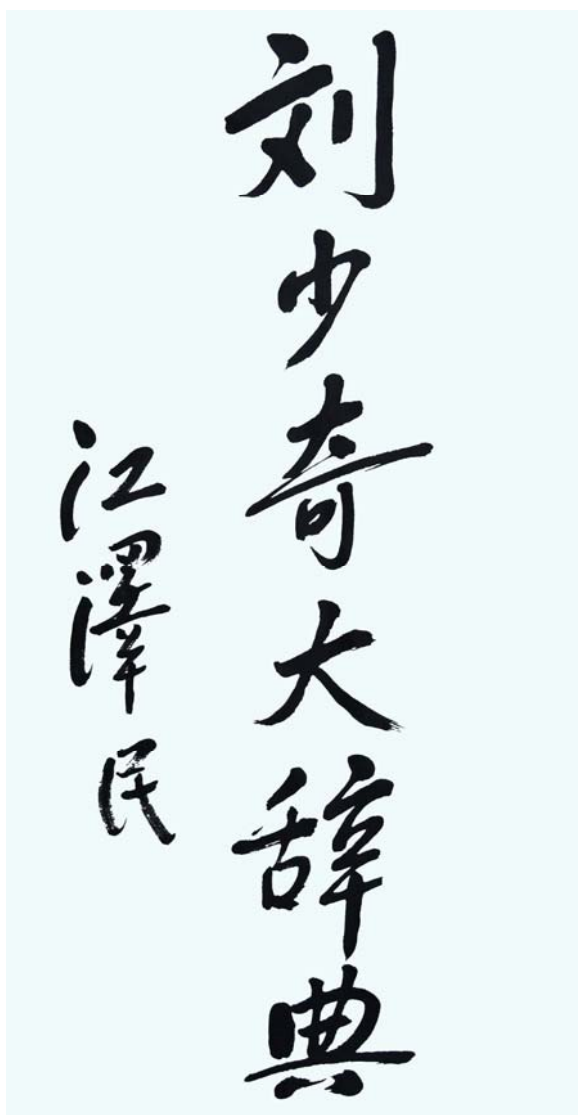 刘少奇大辞典
江澤民